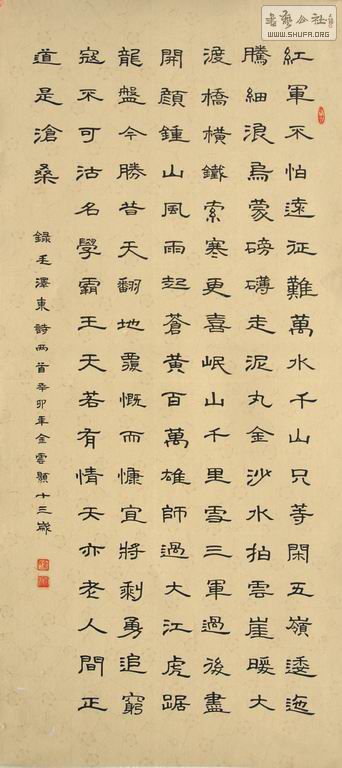 紅軍不怕遠征難萬水千山只等閑五嶺逶迤
騰細浪烏蒙磅礴走泥丸金沙水拍雲崖暖大
渡橋橫鐵索寒更喜岷山千里雪三軍過後盡
開顏鍾山風雨起蒼黃百萬雄師過大江虎踞
龍盤今勝昔天翻地覆慨而慷宜將剩勇追窮
寇不可沽名學霸王天若有情天亦老人間正
道是滄桑
錄毛澤東詩兩首辛卯年金雲十三歲
書藝公社
WWW.SHUFA.ORG